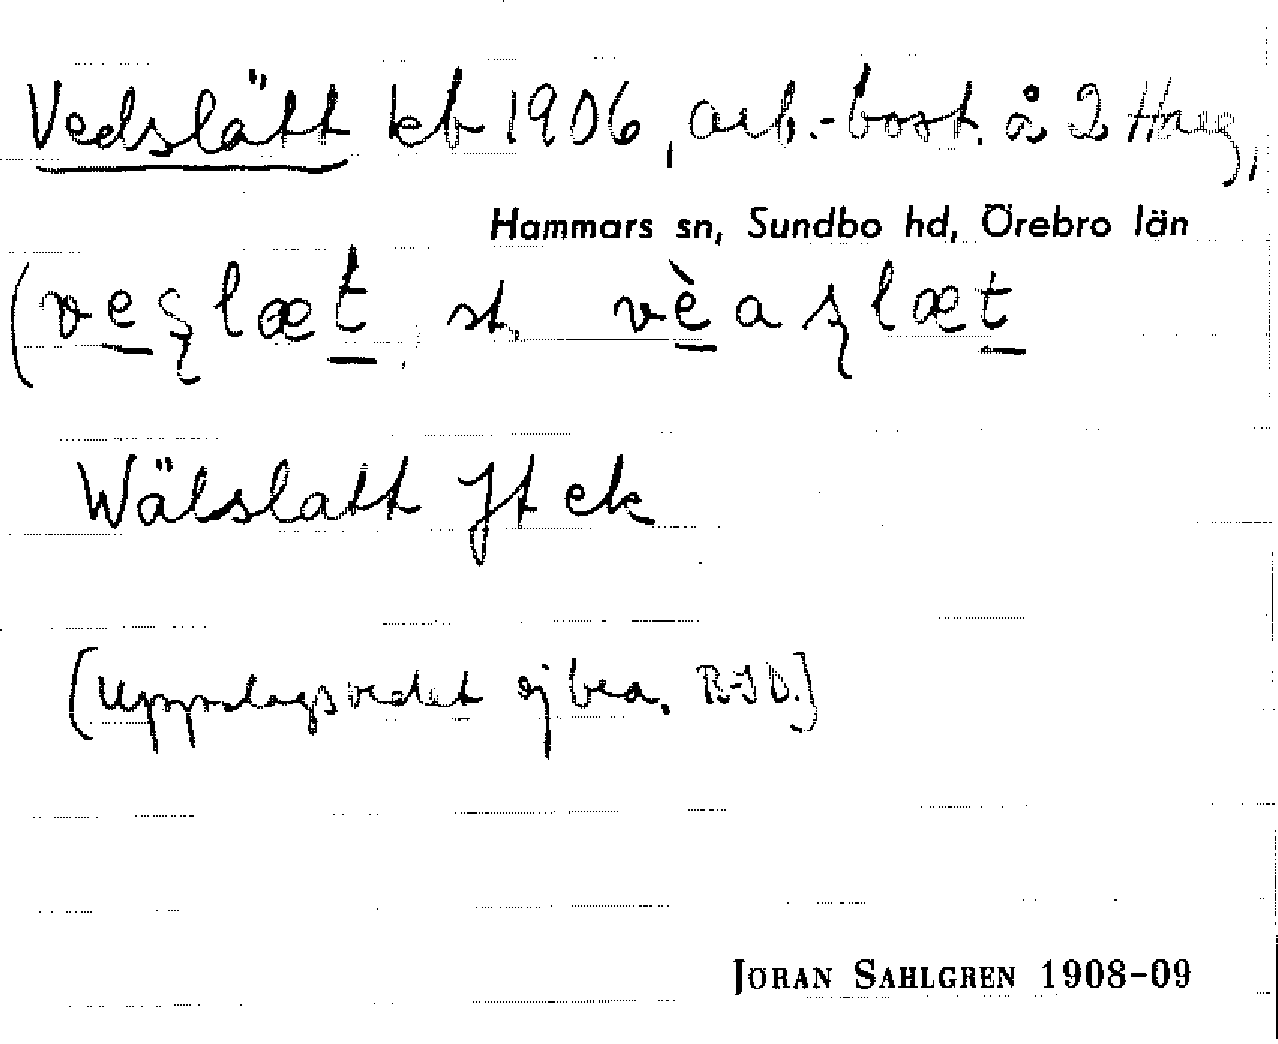 Vedslätt kb 1906, arb.-bost. å 2 Harg,
Hammars sn, Sundbo hd, Örebro län
(veʂlæt, st. vèaʂlæt
Wälslatt Jt ek
[Uppslagsordet ej bea. R-J D.]
JÖRAN SAHLGREN 1908-09